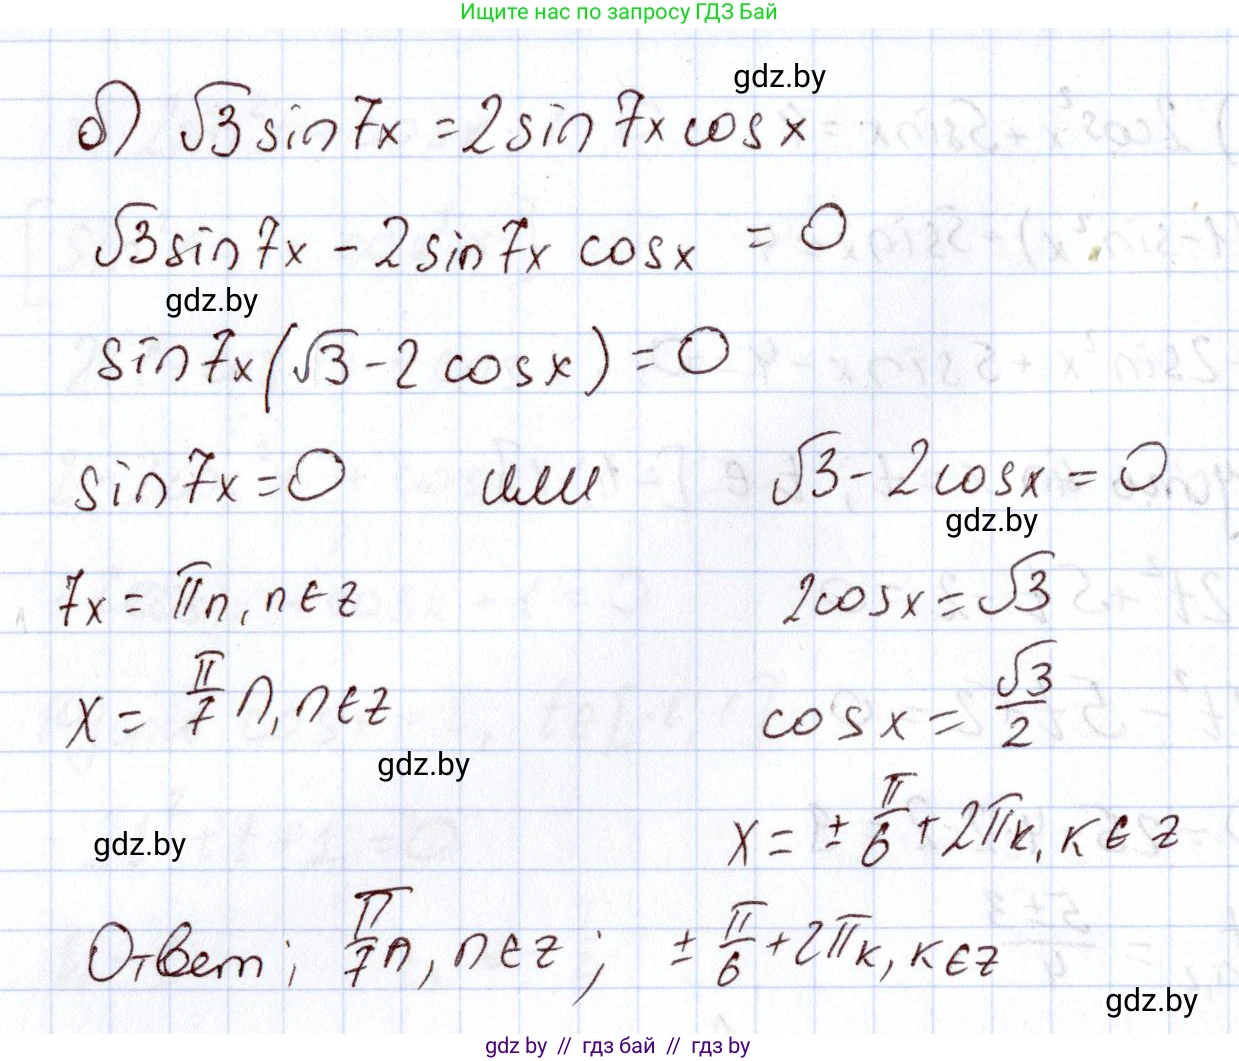 Ищите нас по запросу ГДЗ Бай
gdz.by
б) √3 sin7x = 2sin7x cosx
√3 sin7x − 2sin7x cosx = 0
gdz.by
sin7x(√3 − 2cosx) = 0
sin7x = 0 или √3 − 2cosx = 0
gdz.by
7x = πn, n∈z 2cosx = √3
x = π/7 n, n∈z cosx = √3/2
gdz.by
x = ± π/6 + 2πk, k∈z
gdz.by
Ответ; π/7 n, n∈z; ± π/6 + 2πk, k∈z
gdz.by
gdz by // гдз бай // гдз by